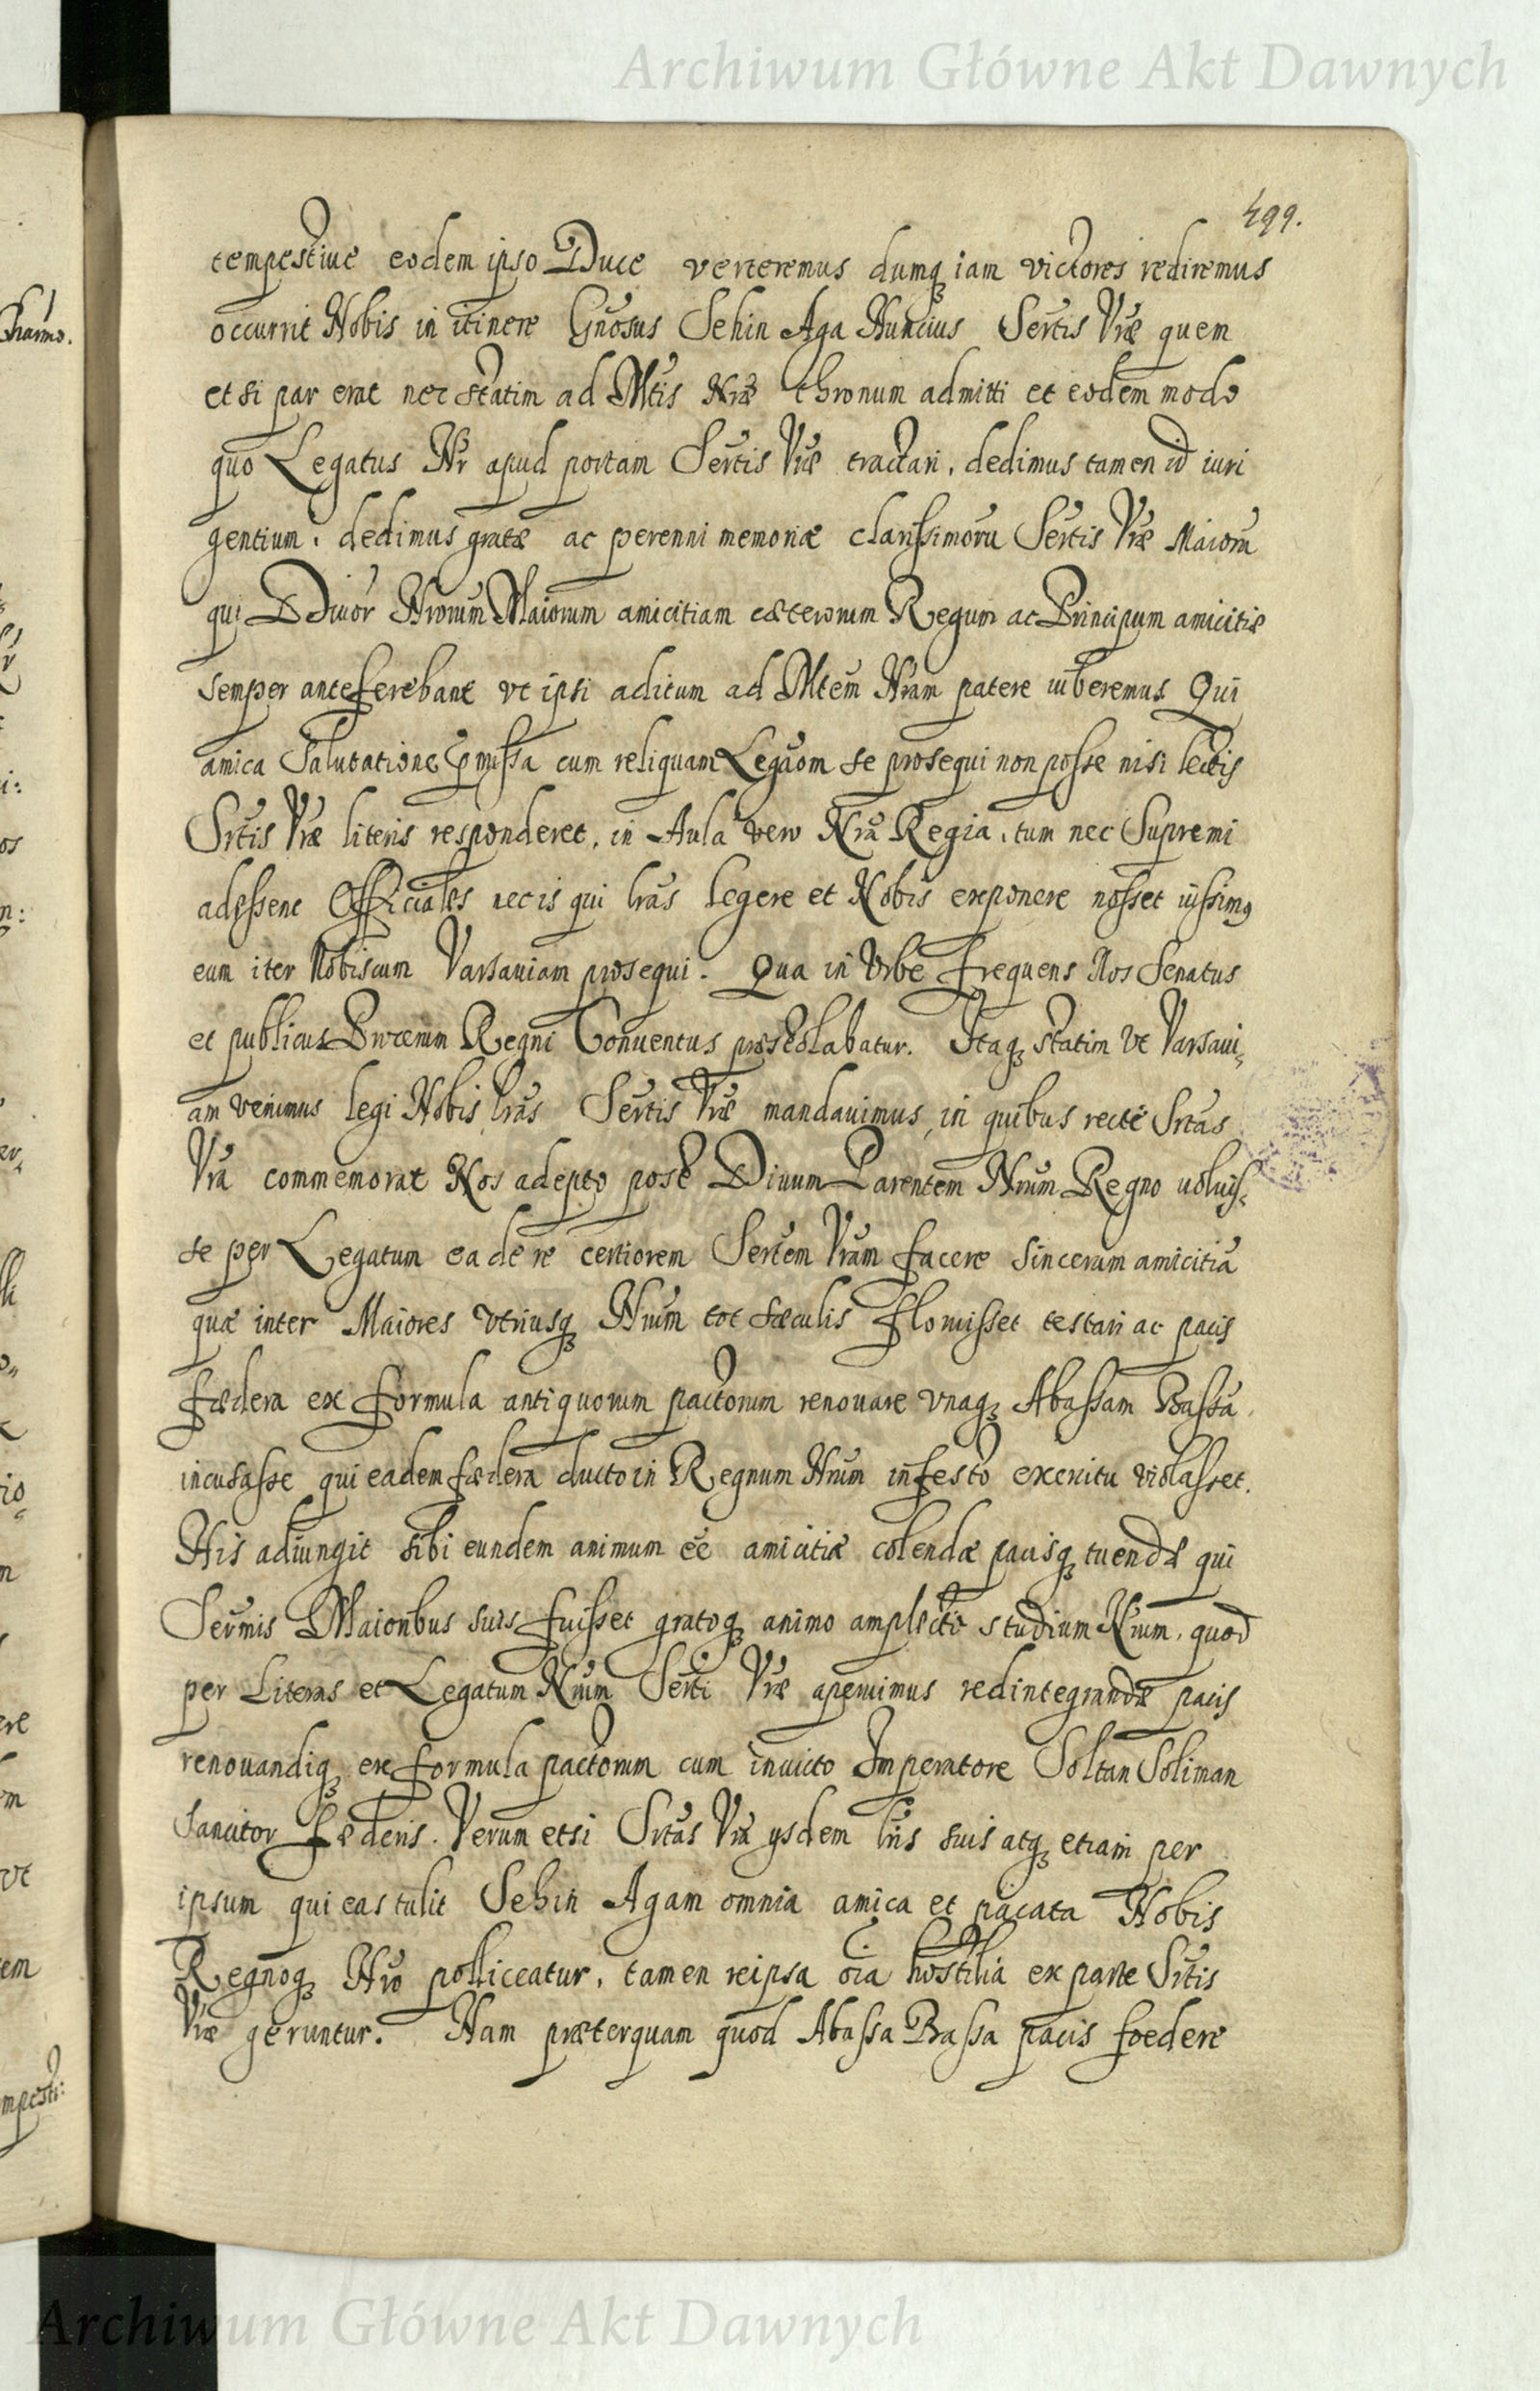 Archiwum Główne Akt Dawnych
499.
tempestiue eodem ipso Duce verteremus dumq iam victores rediremus
occurrit Nobis in itinere Gnosus Sehin Aga Nuncius Sertis Vrae quem
et si par erat nec statim ad Mtis Nrae thronum admitti et eodem modo
quo Legatus Nr apud portam Sertis Vrae tractari, dedimus tamen id iuri
gentium, dedimus gratae ac perenni memoriae clarissimoru Sertis Vrae Maioru
qui DDiuor Nrorum Maiorum amicitiam caeterorum Regum ac Principum amicitiae
semper anteferebant vt ipsi aditum ad Mtem Nram patere iuberemus Qui
amica Salutatione pmissa cum reliquam Legaom se prosequi non posse nisi lectis
Srtis Vrae literis responderet, in Aula vero Nra Regia, tum nec Supremi
adessent Officiales nec is qui lras legere et Nobis exponere nosset iussimq
eum iter Nobiscum Varsauiam prosequi. Qua in Vrbe frequens Nos Senatus
et publicus Procerum Regni Conuentus praestolabatur. Itaq statim vt Varsaui,
am venimus legi Nobis lras Sertis Vrae mandauimus, in quibus recte Srtas
Vra commemorat Nos adepto post Diuum Parentem Nrum Regno voluis,
se per Legatum ea de re certiorem Sertem Vram facere sinceram amicitia
quae inter Maiores vtriusq Nrum tot saeculis floruisset testari ac pacis
faedera ex formula antiquorum pactorum renouare vnaq Abassam Bassa
incusasse qui eadem faedera ducto in Regnum Nrum infesto exercitu violasset.
His adiungit sibi eundem animum ee amicitiae colendae pacisq tuendae qui
Sermis Maioribus suis fuisset gratoq animo amplecti studium Nrum, quod
per Literas et Legatum Nrum Serti Vrae aperuimus redintegrandae pacis
renouandiq ex formula pactorum cum inuicto Imperatore Soltan Soliman
sancitor faederis. Verum etsi Srtas Vra ysdem lris suis atq etiam per
ipsum qui eas tulit Sehin Agam omnia amica et pacata Nobis
Regnoq Nro polliceatur, tamen reipsa oia hostilia ex parte Srtis
Vrae geruntur. Nam praeterquam quod Abassa Bassa pacis foedere
Archiwum Główne Akt Dawnych